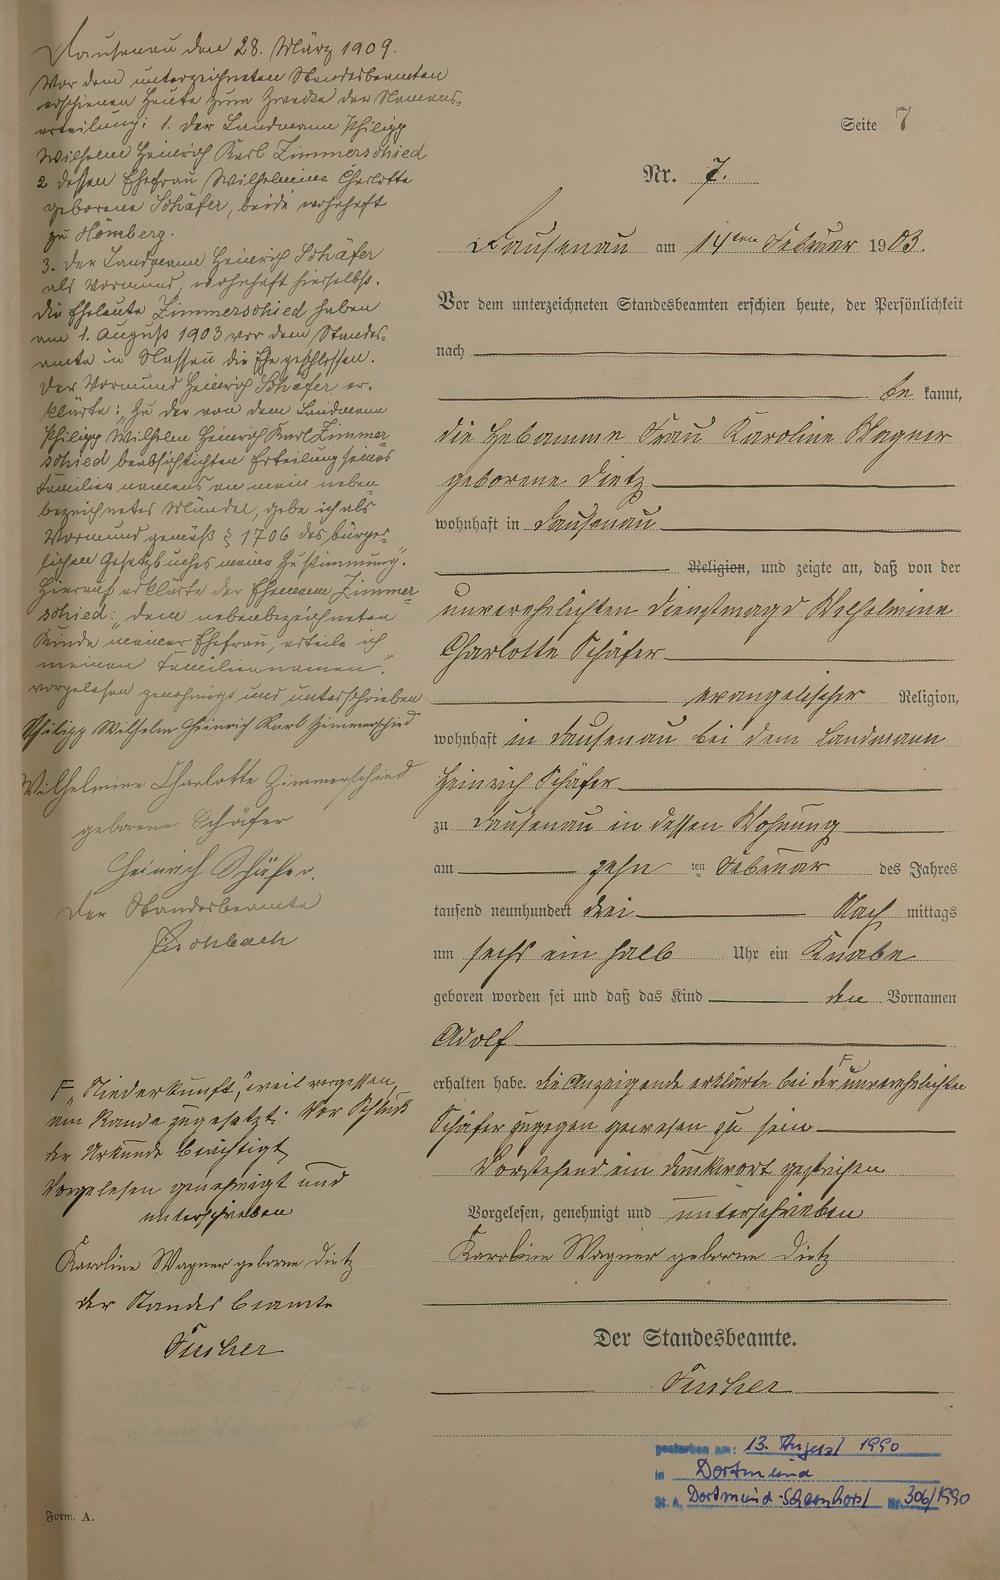 Dausenau den 28. März 1909.
Vor dem unterzeichneten Standesbeamten
erschienen heute zum Zwecke der Namens-
erteilung: 1. der Landmann Philipp
Wilhelm Heinrich Karl Zimmerschied
2 dessen Ehefrau Wilhelmine Charlotte
geborene Schäfer, beide wohnhaft
zu Hömberg.
3. der Landmann Heinrich Schäfer
als Vormund, wohnhaft hierselbst.
Die Eheleute Zimmerschied haben
am 1. August 1903 vor dem Standes-
amte in Nassau die Ehe geschlossen.
Der Vormund Heinrich Schäfer er-
klärte: „Zu der von dem Landmann
Philipp Wilhelm Heinrich Karl Zimmer-
schied beabsichtigten Erteilung seines
Familiennamens an mein neben-
bezeichnetes Mündel, gebe ich als
Vormund gemäß § 1706 des bürger-
lichen Gesetzbuches meine Zustimmung“.
Hierauf erklärte der Ehemann Zimmer-
schied: „dem nebenbezeichneten
Kinde meiner Ehefrau, erteile ich
meinen Familiennamen“.
vorgelesen genehmigt und unterschrieben
Philipp Wilhelm Heinrich Karl Zimmerschied
Wilhelmine Charlotte Zimmerschied
geborene Schäfer
Heinrich Schäfer.
Der Standesbeamte
Fischbach
F „Niederkunft,“ weil vergessen,
am Rande zugesetzt. Vor Schluß
der Urkunde berichtigt
Vorgelesen genehmigt und
unterschrieben
Karoline Wagner geborne Dietz
der Standesbeamte
Fischer
Form. A.
Seite 7
Nr. 7.
Dausenau am 14ten Februar 1903.
Vor dem unterzeichneten Standesbeamten erschien heute, der Persönlichkeit
nach
be kannt,
die Hebamme Frau Karoline Wagner
geborene Dietz
wohnhaft in Dausenau
Religion, und zeigte an, daß von der
unverehelichten Dienstmagd Wilhelmine
Charlotte Schäfer
evangelischer Religion,
wohnhaft in Dausenau bei dem Landmann
Heinrich Schäfer
zu Dausenau in dessen Wohnung
am zehn ten Februar des Jahres
tausend neunhundert drei Nach mittags
um sechs ein halb Uhr ein Knabe
geboren worden sei und daß das Kind den Vornamen
Adolf
erhalten habe. Die Anzeigende erklärte bei der F unverehelichten
Schäfer zugegen gewesen zu sein
Vorstehend ein Druckwort gestrichen
Vorgelesen, genehmigt und unterschrieben
Karoline Wagner geborne Dietz
Der Standesbeamte.
Fischer
gestorben am: 13. August 1990
in Dortmund
St. A. Dortmund-Scharnhorst Nr. 306/1990